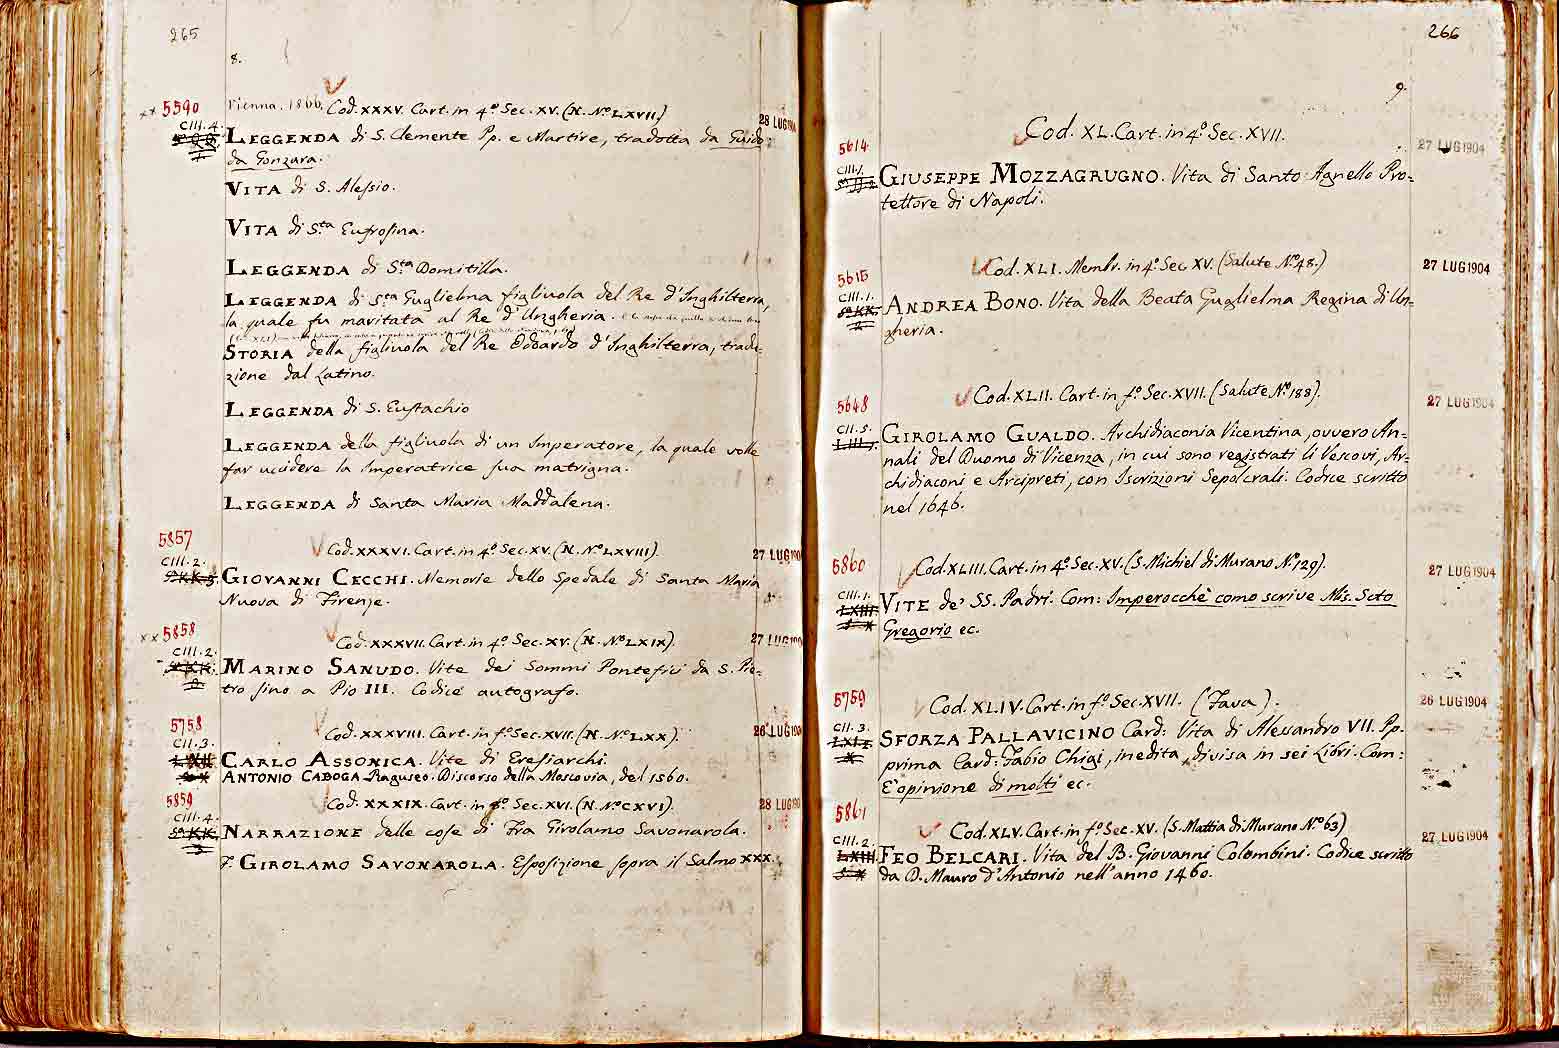 265
8.
Vienna. 1866. Cod. XXXV. Cart. in 4.º Sec. XV. (N. Nº LXVII.)
xx 5590
28 LUG 1904
CIII. 4.
LEGGENDA di S. Clemente Pp. e Martire, tradotta da Guido
da Gonzara.
VITA di S. Alessio.
VITA di S.ta Eufrosina.
LEGGENDA di S.ta Domitilla.
LEGGENDA di S.ta Guglielma figliuola del Re d'Inghilterra,
la quale fu maritata al Re d'Ungheria.
STORIA della figliuola del Re Odoardo d'Inghilterra, tradu-
zione dal Latino.
LEGGENDA di S. Eustachio
LEGGENDA della figliuola di un Imperatore, la quale volle
far uccidere la Imperatrice sua matrigna.
LEGGENDA di Santa Maria Maddalena.
5857
Cod. XXXVI. Cart. in 4.º Sec. XV. (N. Nº LXVIII).
27 LUG 190
CIII. 2.
GIOVANNI CECCHI. Memorie dello Spedale di Santa Maria
Nuova di Firenze.
xx 5858
Cod. XXXVII. Cart. in 4.º Sec. XV. (N. Nº LXIX).
27 LUG 190
CIII. 2.
MARINO SANUDO. Vite dei Sommi Pontefici da S. Pie-
tro sino a Pio III. Codice autografo.
5758
Cod. XXXVIII. Cart. in fº Sec. XVII. (N. Nº LXX).
26 LUG 190
CII. 3.
CARLO ASSONICA. Vite di Eresiarchi.
ANTONIO CABOGA Raguseo. Discorso della Moscovia, del 1560.
5859
Cod. XXXIX. Cart. in fº. Sec. XVI. (N. Nº CXVI).
28 LUG 190
CIII. 4.
NARRAZIONE delle cose di Fra Girolamo Savonarola.
7. GIROLAMO SAVONAROLA. Esposizione sopra il Salmo XXX.
266
9.
Cod. XL. Cart. in 4.º Sec. XVII.
5614
27 LUG 1904
CIII. 1.
GIUSEPPE MOZZAGRUGNO. Vita di Santo Agnello Pro-
tettore di Napoli.
5615
Cod. XLI. Membr. in 4.º Sec. XV. (Salute Nº. 48.)
27 LUG 1904
CIII. 1.
ANDREA BONO. Vita della Beata Guglielma Regina di Un-
gheria.
5648
Cod. XLII. Cart. in fº. Sec. XVII. (Salute Nº. 188).
27 LUG 1904
CII. 5.
GIROLAMO GUALDO. Archidiaconia Vicentina, ovvero An-
nali del Duomo di Vicenza, in cui sono registrati li Vescovi, Ar-
chidiaconi e Arcipreti, con Iscrizioni Sepolcrali. Codice scritto
nel 1646.
5860
Cod. XLIII. Cart. in 4.º Sec. XV. (S. Michiel di Murano Nº. 129).
27 LUG 1904
CIII. 1.
VITE de' SS. Padri. Com: Imperocchè como scrive Mis. Scto
Gregorio ec.
5759
Cod. XLIV. Cart. in fº. Sec. XVII. (Fava).
26 LUG 1904
CII. 3.
SFORZA PALLAVICINO Card: Vita di Alessandro VII. Pp.
prima Card: Fabio Chigi, inedita, divisa in sei Libri. Com:
E' opinione di molti ec.
5861
Cod. XLV. Cart. in fº. Sec. XV. (S. Mattia di Murano Nº 63)
27 LUG 1904
CIII. 2.
FEO BELCARI. Vita del B. Giovanni Colombini. Codice scritto
da D. Mauro d'Antonio nell'anno 1460.